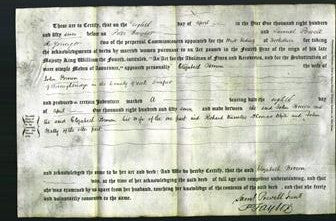 These are to Certify, that on the eighth day of April in the Year One thousand eight hundred and
fifty before Peter Taylor and Samuel Powell
the younger two of the perpetual Commissioners appointed for the West Riding of Yorkshire for taking
the acknowledgments of deeds by married women pursuant to an Act passed in the Fourth Year of the reign of his late
Majesty King William the Fourth, intituled, "An Act for the Abolition of Fines and Recoveries, and for the Substitution of
more simple Modes of Assurance," appeared personally Elizabeth Brown
John Brown
of in the County of
and produced a certain Indenture marked A bearing date the eighth
of April One thousand eight hundred and fifty and made between the said John Brown and
the said Elizabeth Brown his wife of the one part and Richard Thomas and John
of the other part
and acknowledged the same to be her act and deed: And We do hereby Certify, that the said Elizabeth Brown
was, at the time of her acknowledging the said deed, of full age and competent understanding, and that
she was examined by us apart from her husband, touching her knowledge of the contents of the said deed, and that she freely
and voluntarily consented to the same.
Saml Powell Junr
P Taylor